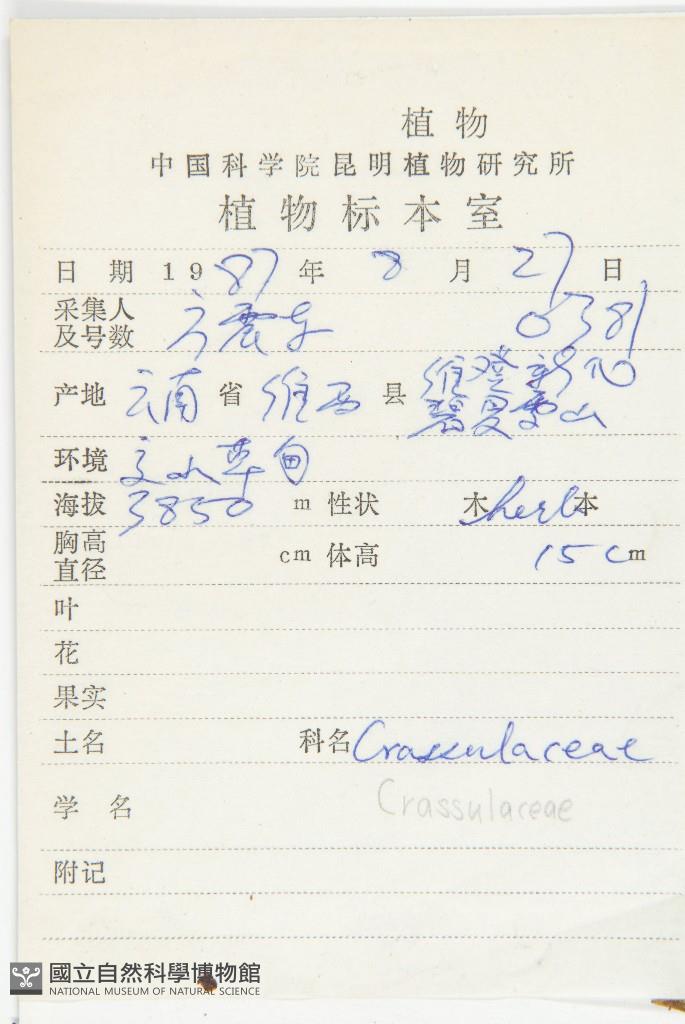 植物
中国科学院昆明植物研究所
植物标本室
日 期 1987年 8 月 27 日
采集人
及号数 方震东 0381
产地 云南 省 维西 县 维登新化
碧罗雪山
环境 草甸
海拔 3850 m 性状 木 herb 本
胸高
直径 cm 体高 15cm
叶
花
果实
土名 科名 Crassulaceae
学 名 Crassulaceae
附记
國立自然科學博物館
NATIONAL MUSEUM OF NATURAL SCIENCE